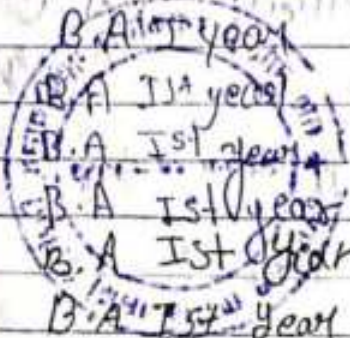 B.A Ist year
B.A Ist year
B.A Ist year
B.A Ist year
B.A Ist year
B.A Ist year